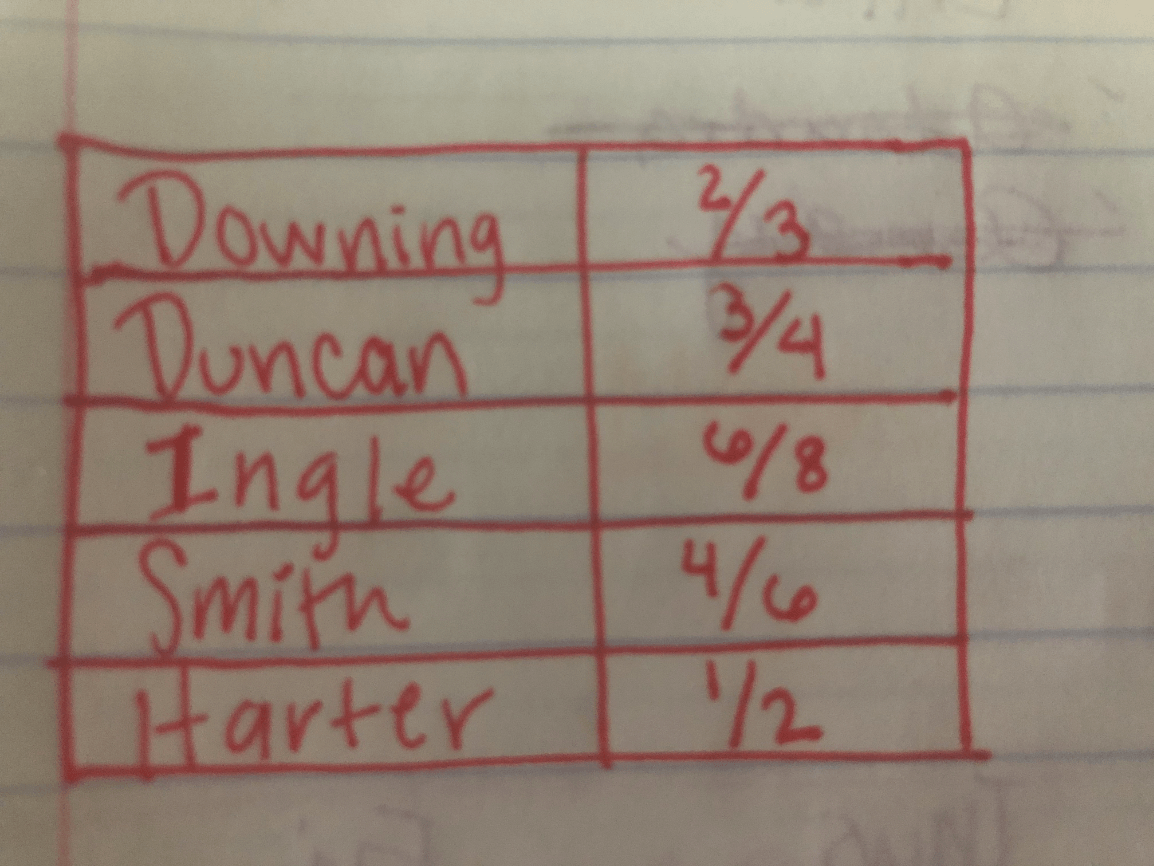 Downing 2/3
Duncan 3/4
Ingle 6/8
Smith 4/6
Harter 1/2